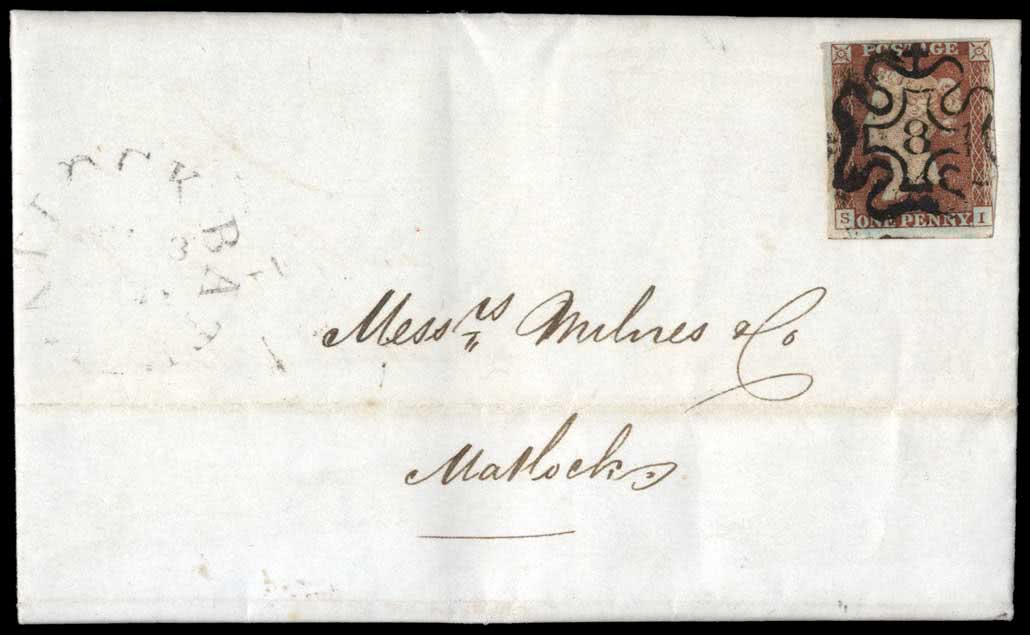 POSTAGE
8
S ONE PENNY I
Messrs Milnes & Co
Matlock